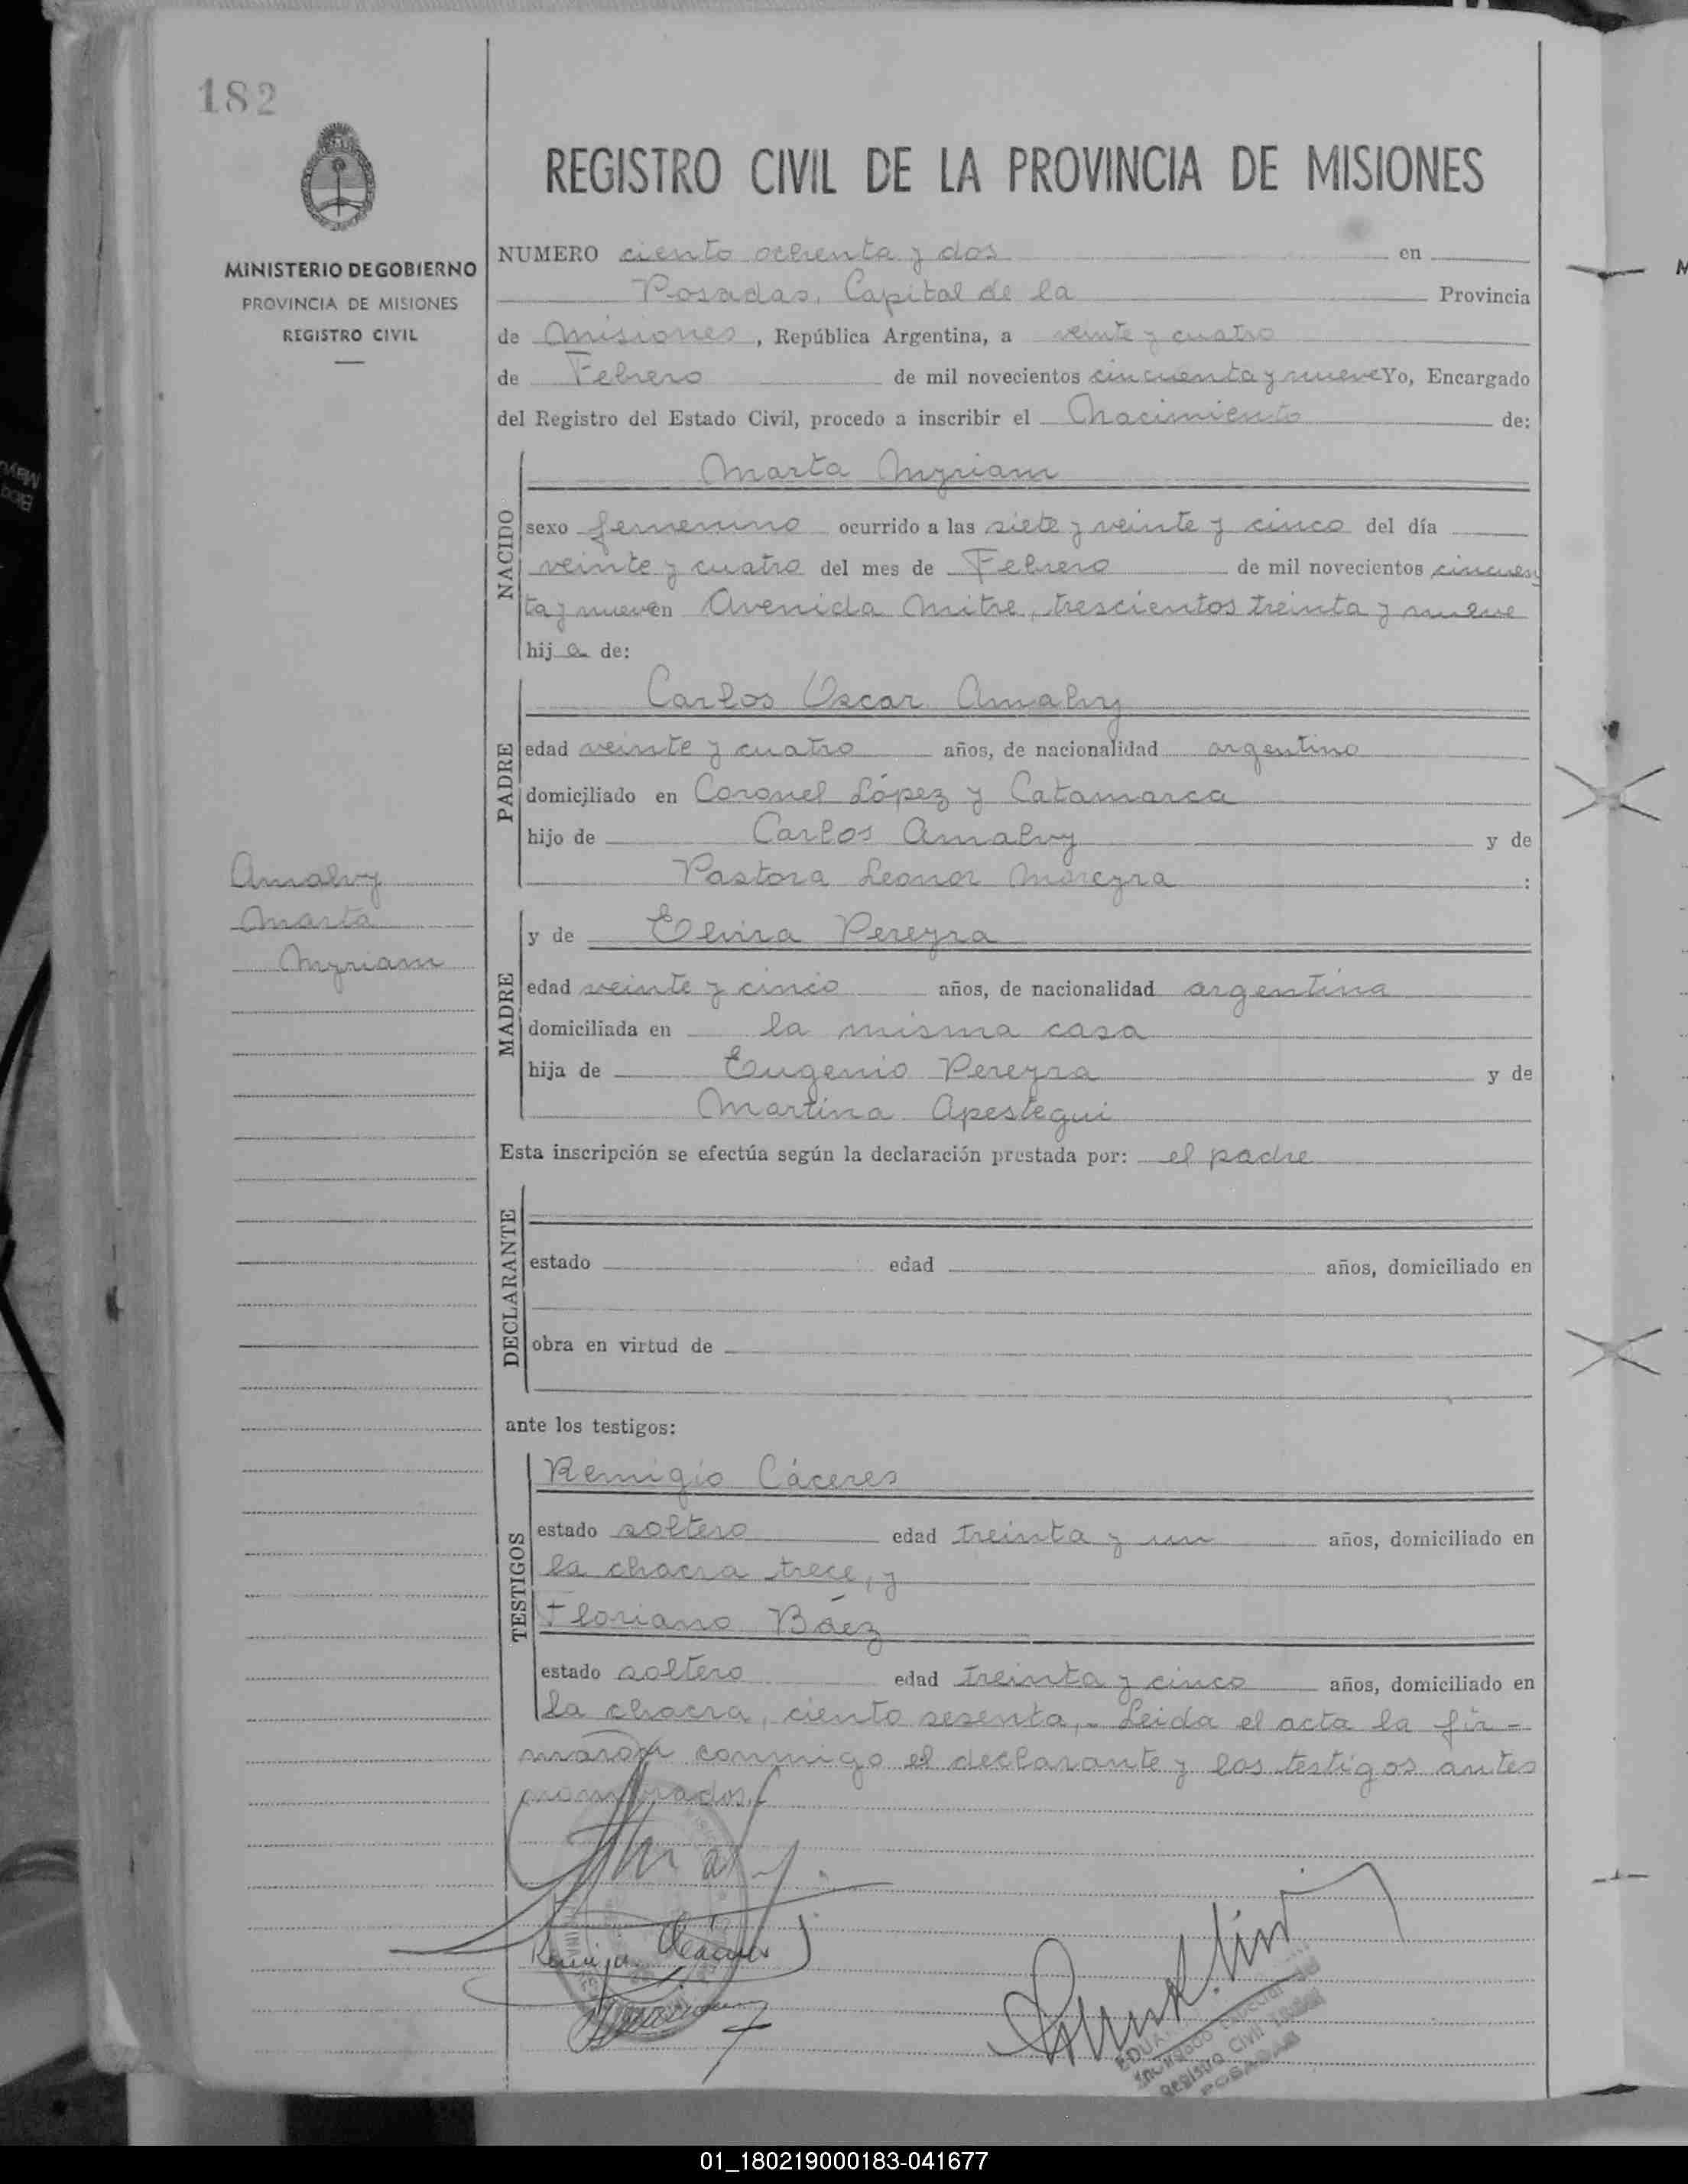 182
REGISTRO CIVIL DE LA PROVINCIA DE MISIONES
MINISTERIO DE GOBIERNO
PROVINCIA DE MISIONES
REGISTRO CIVIL
NUMERO ciento ochenta y dos en
Posadas, Capital de la Provincia
de Misiones, República Argentina, a veinte y cuatro
de Febrero de mil novecientos cincuenta y nueve Yo, Encargado
del Registro del Estado Civil, procedo a inscribir el Nacimiento de:
NACIDO
Marta Myriam
sexo femenino ocurrido a las siete y veinte y cinco del día
veinte y cuatro del mes de Febrero de mil novecientos cincuen
ta y nueve en Avenida Mitre, trescientos treinta y nueve
hija de:
PADRE
Carlos Oscar Amalvy
edad veinte y cuatro años, de nacionalidad argentino
domiciliado en Coronel López y Catamarca
hijo de Carlos Amalvy y de
Pastora Leonor Moreyra :
Amalvy
Marta
Myriam
MADRE
y de Elvira Pereyra
edad veinte y cinco años, de nacionalidad argentina
domiciliada en la misma casa
hija de Eugenio Pereyra y de
Martina Apestegui
Esta inscripción se efectúa según la declaración prestada por: el padre
DECLARANTE
estado edad años, domiciliado en
obra en virtud de
ante los testigos:
TESTIGOS
Remigio Cáceres
estado soltero edad treinta y un años, domiciliado en
la chacra trece, y
Floriano Báez
estado soltero edad treinta y cinco años, domiciliado en
la chacra, ciento sesenta,- Leida el acta la fir-
maron conmigo el declarante y los testigos antes
nombrados.-
Registro Civil
POSADAS
01_180219000183-041677